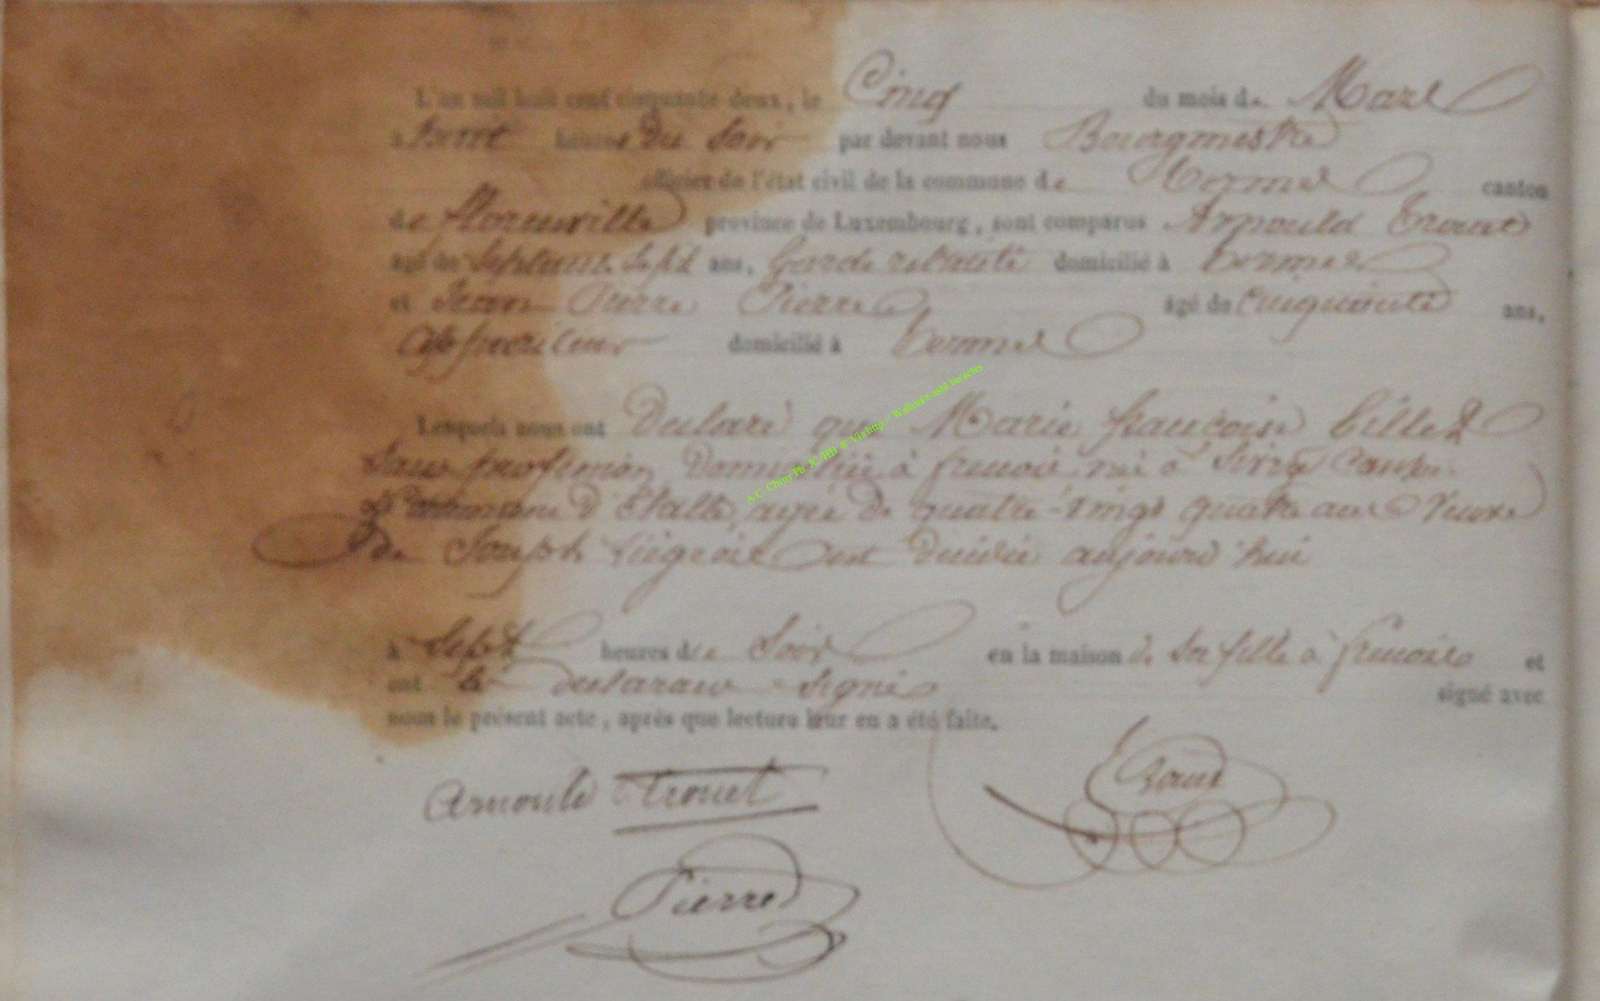 L'an mil huit cent cinquante-deux, le Cinq du mois de Mars
à huit heures du Soir par devant nous Bourgmestre
officier de l'état civil de la commune de Termes canton
de florenville province de Luxembourg, sont comparus Arnould Trouet
âgé de Septante Sept ans, Garde retraité domicilié à termes
et Jean Pierre Pierre âgé de Cinquante ans,
domicilié à termes
Lesquels nous ont Declaré que Marie françoise billet
Sans profession Domiciliée à frenois née à
d'Etalle, agée de quatre-vingt quatre ans Veuve
de Joseph Liégeois est Décédée aujourd'hui
à Sept heures du Soir en la maison de sa fille à frenois et
ont les declarans signé signé avec
nous le présent acte, après que lecture leur en a été faite.
Arnould trouet
Pierre